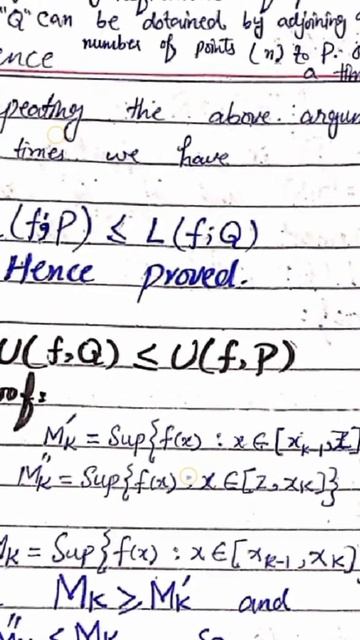 "Q" can be obtained by adjoining
ence number of points (n) to P.
a
peating the above argum
times we have
L(f;P) ≤ L(f;Q)
Hence proved.
U(f,Q) ≤ U(f,P)
oof:
M'ₖ = Sup{f(x) : x ∈ [xₖ₋₁, z]
M''ₖ = Sup{f(x) : x ∈ [z, xₖ]}
Mₖ = Sup{f(x) : x ∈ [xₖ₋₁, xₖ]
Mₖ ≥ M'ₖ and
M''ₖ ≤ Mₖ